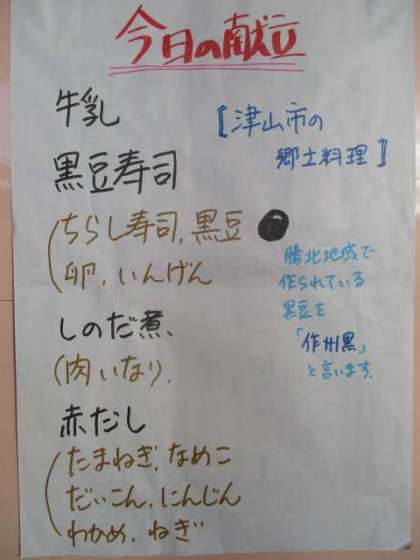 今日の献立
牛乳
【津山市の
郷土料理】
黒豆寿司
(ちらし寿司、黒豆
卵、いんげん
勝北地域で
作られている
黒豆を
「作州黒」
と言います。
しのだ煮、
(肉いなり)、
赤だし
(たまねぎ、なめこ
だいこん、にんじん
わかめ、ねぎ